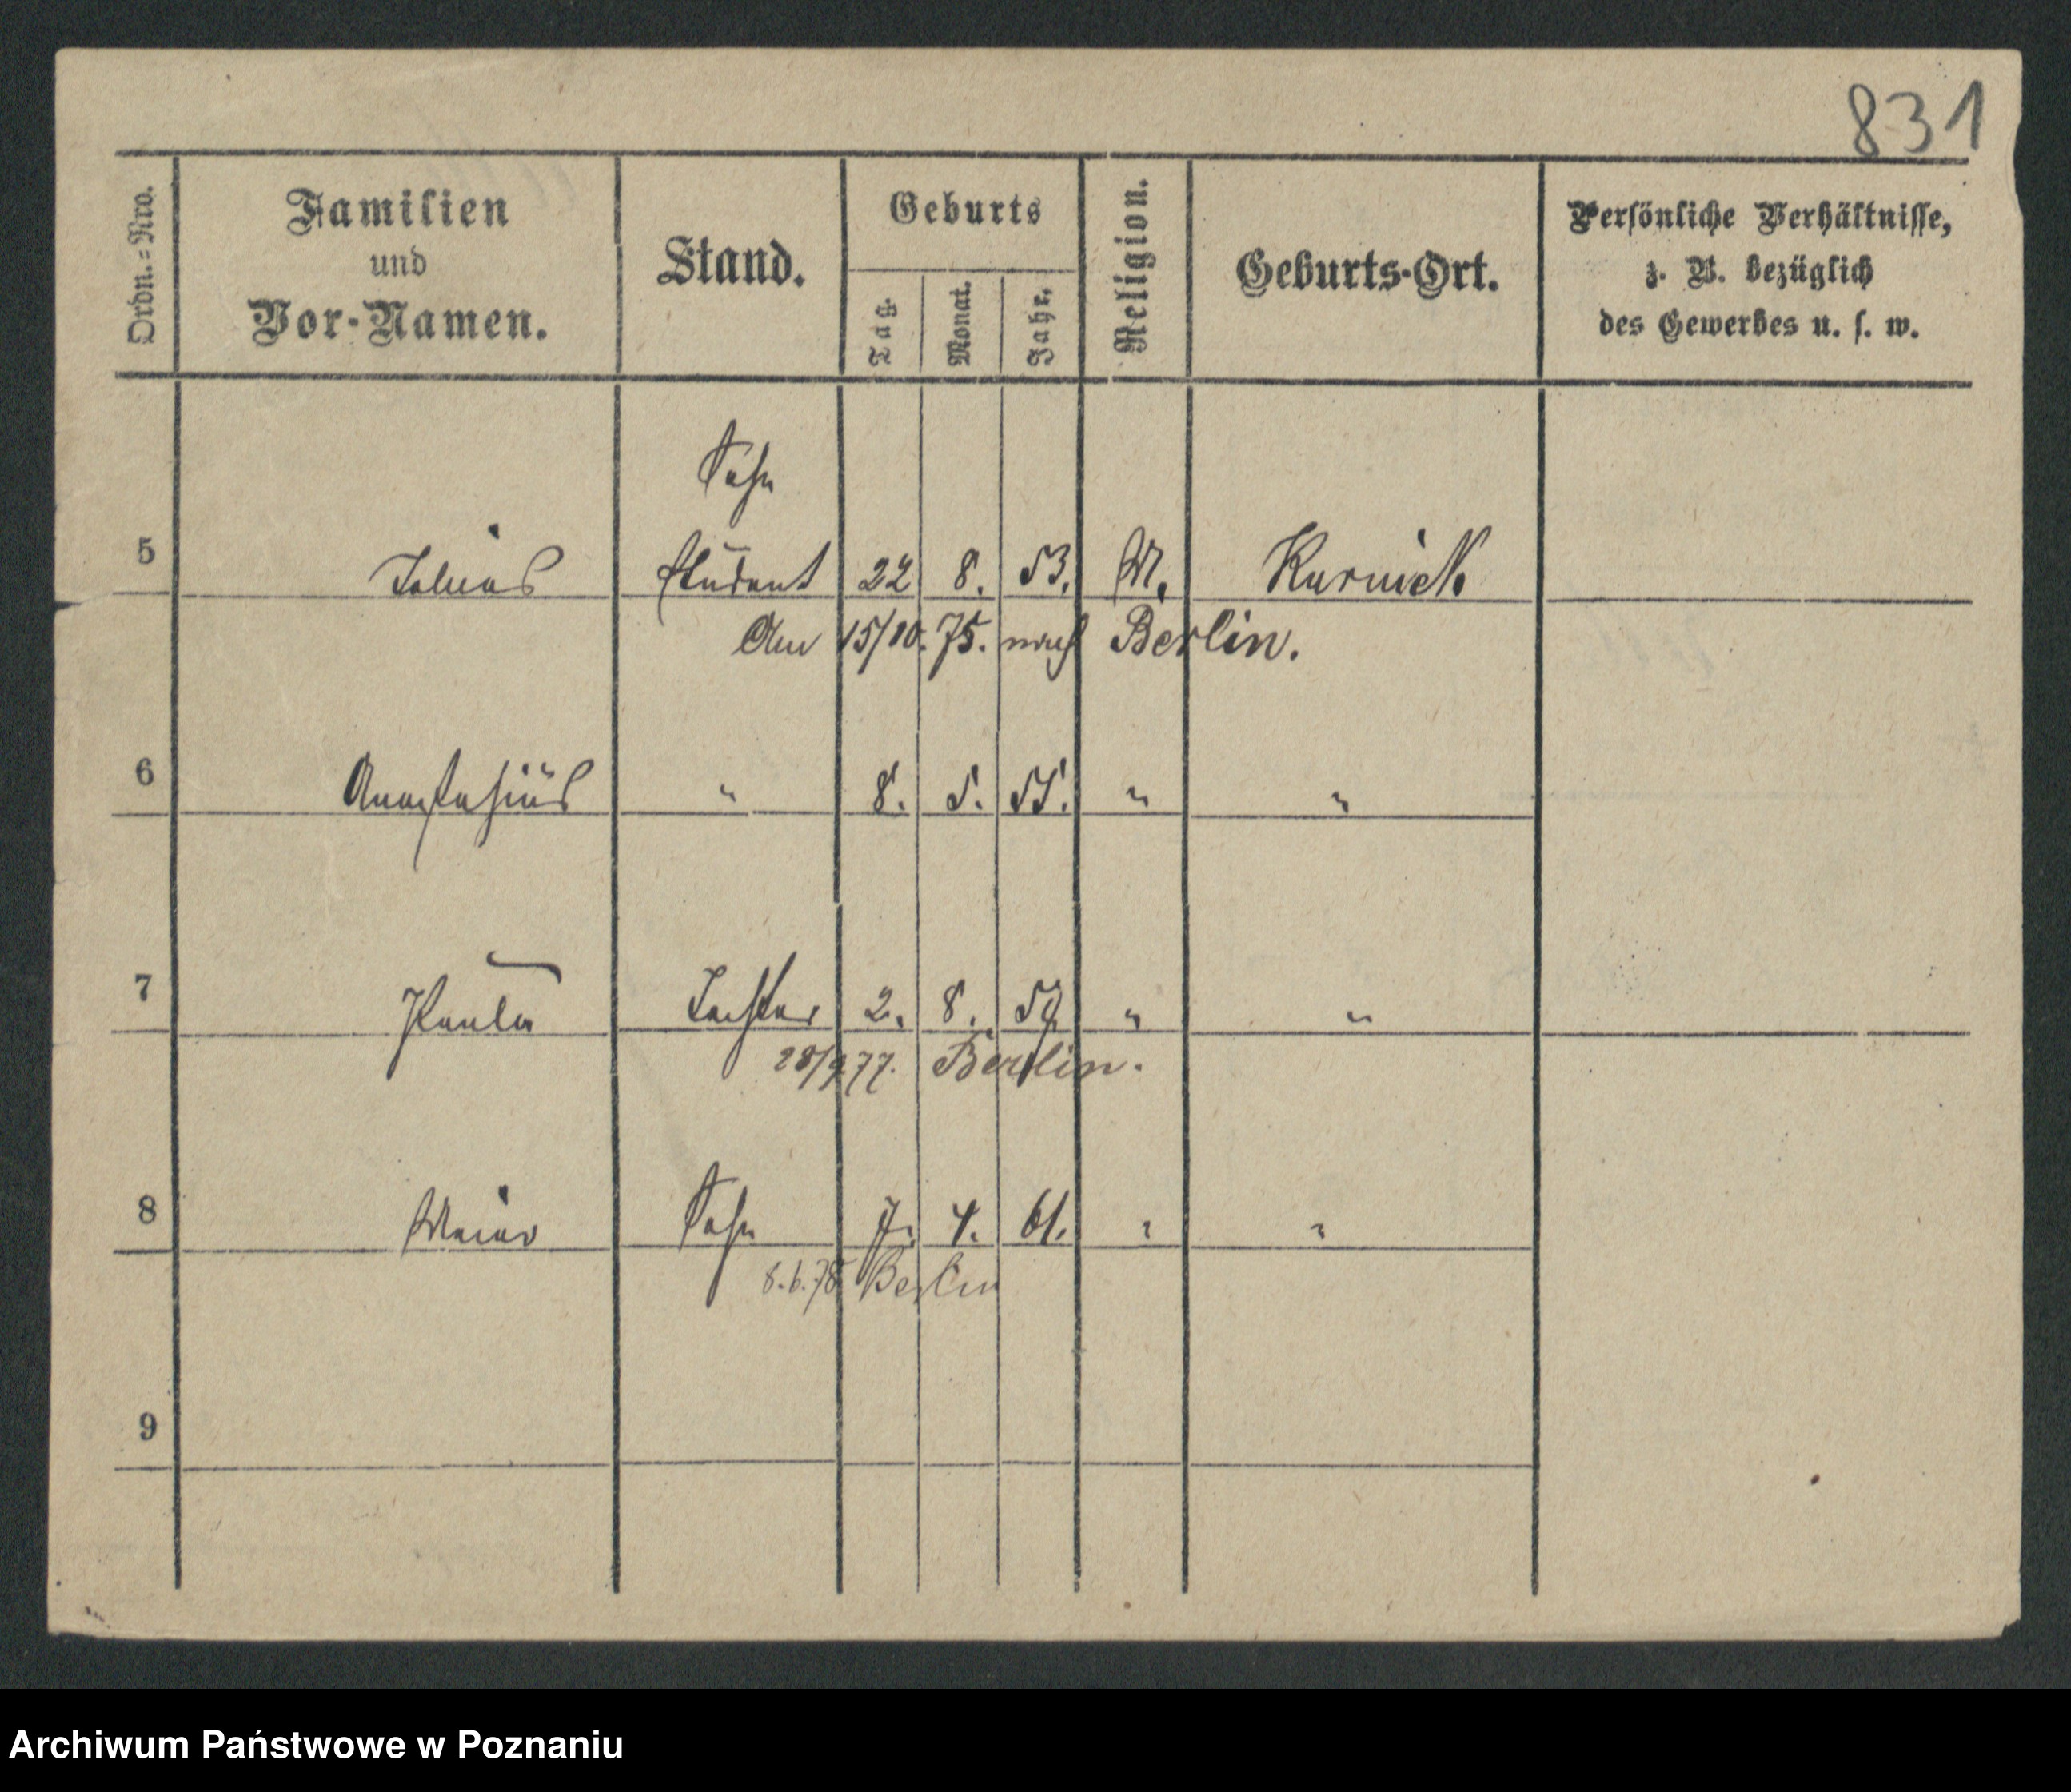 831
Ordn.=Nro.
Familien
und
Vor-Namen.
Stand.
Geburts
Tag.
Monat.
Jahr.
Religion.
Geburts-Ort.
Persönliche Verhältnisse,
z. B. bezüglich
des Gewerbes u. s. w.
Sohn
5 Tobias Student 22 8. 53. M. Kurnick
Am 15/10. 75. nach Berlin.
6 Anastasius " 8. 5. 55. " "
7 Paula Tochter 2. 8. 59 " "
28/9 77. Berlin.
8 Meier Sohn 7. 4. 61. " "
8. 6. 78 Berlin
9
Archiwum Państwowe w Poznaniu